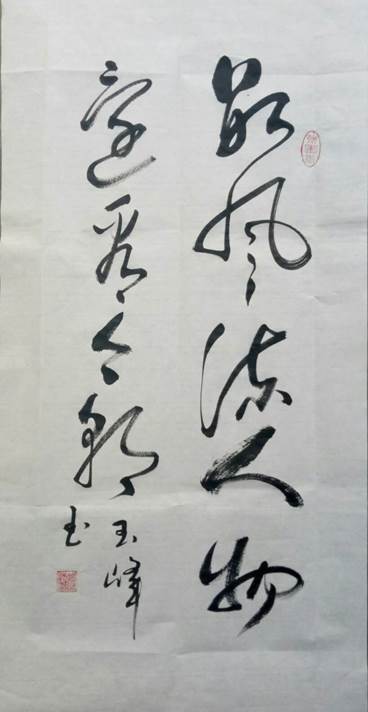 数风流人物
还看今朝
玉峰
书